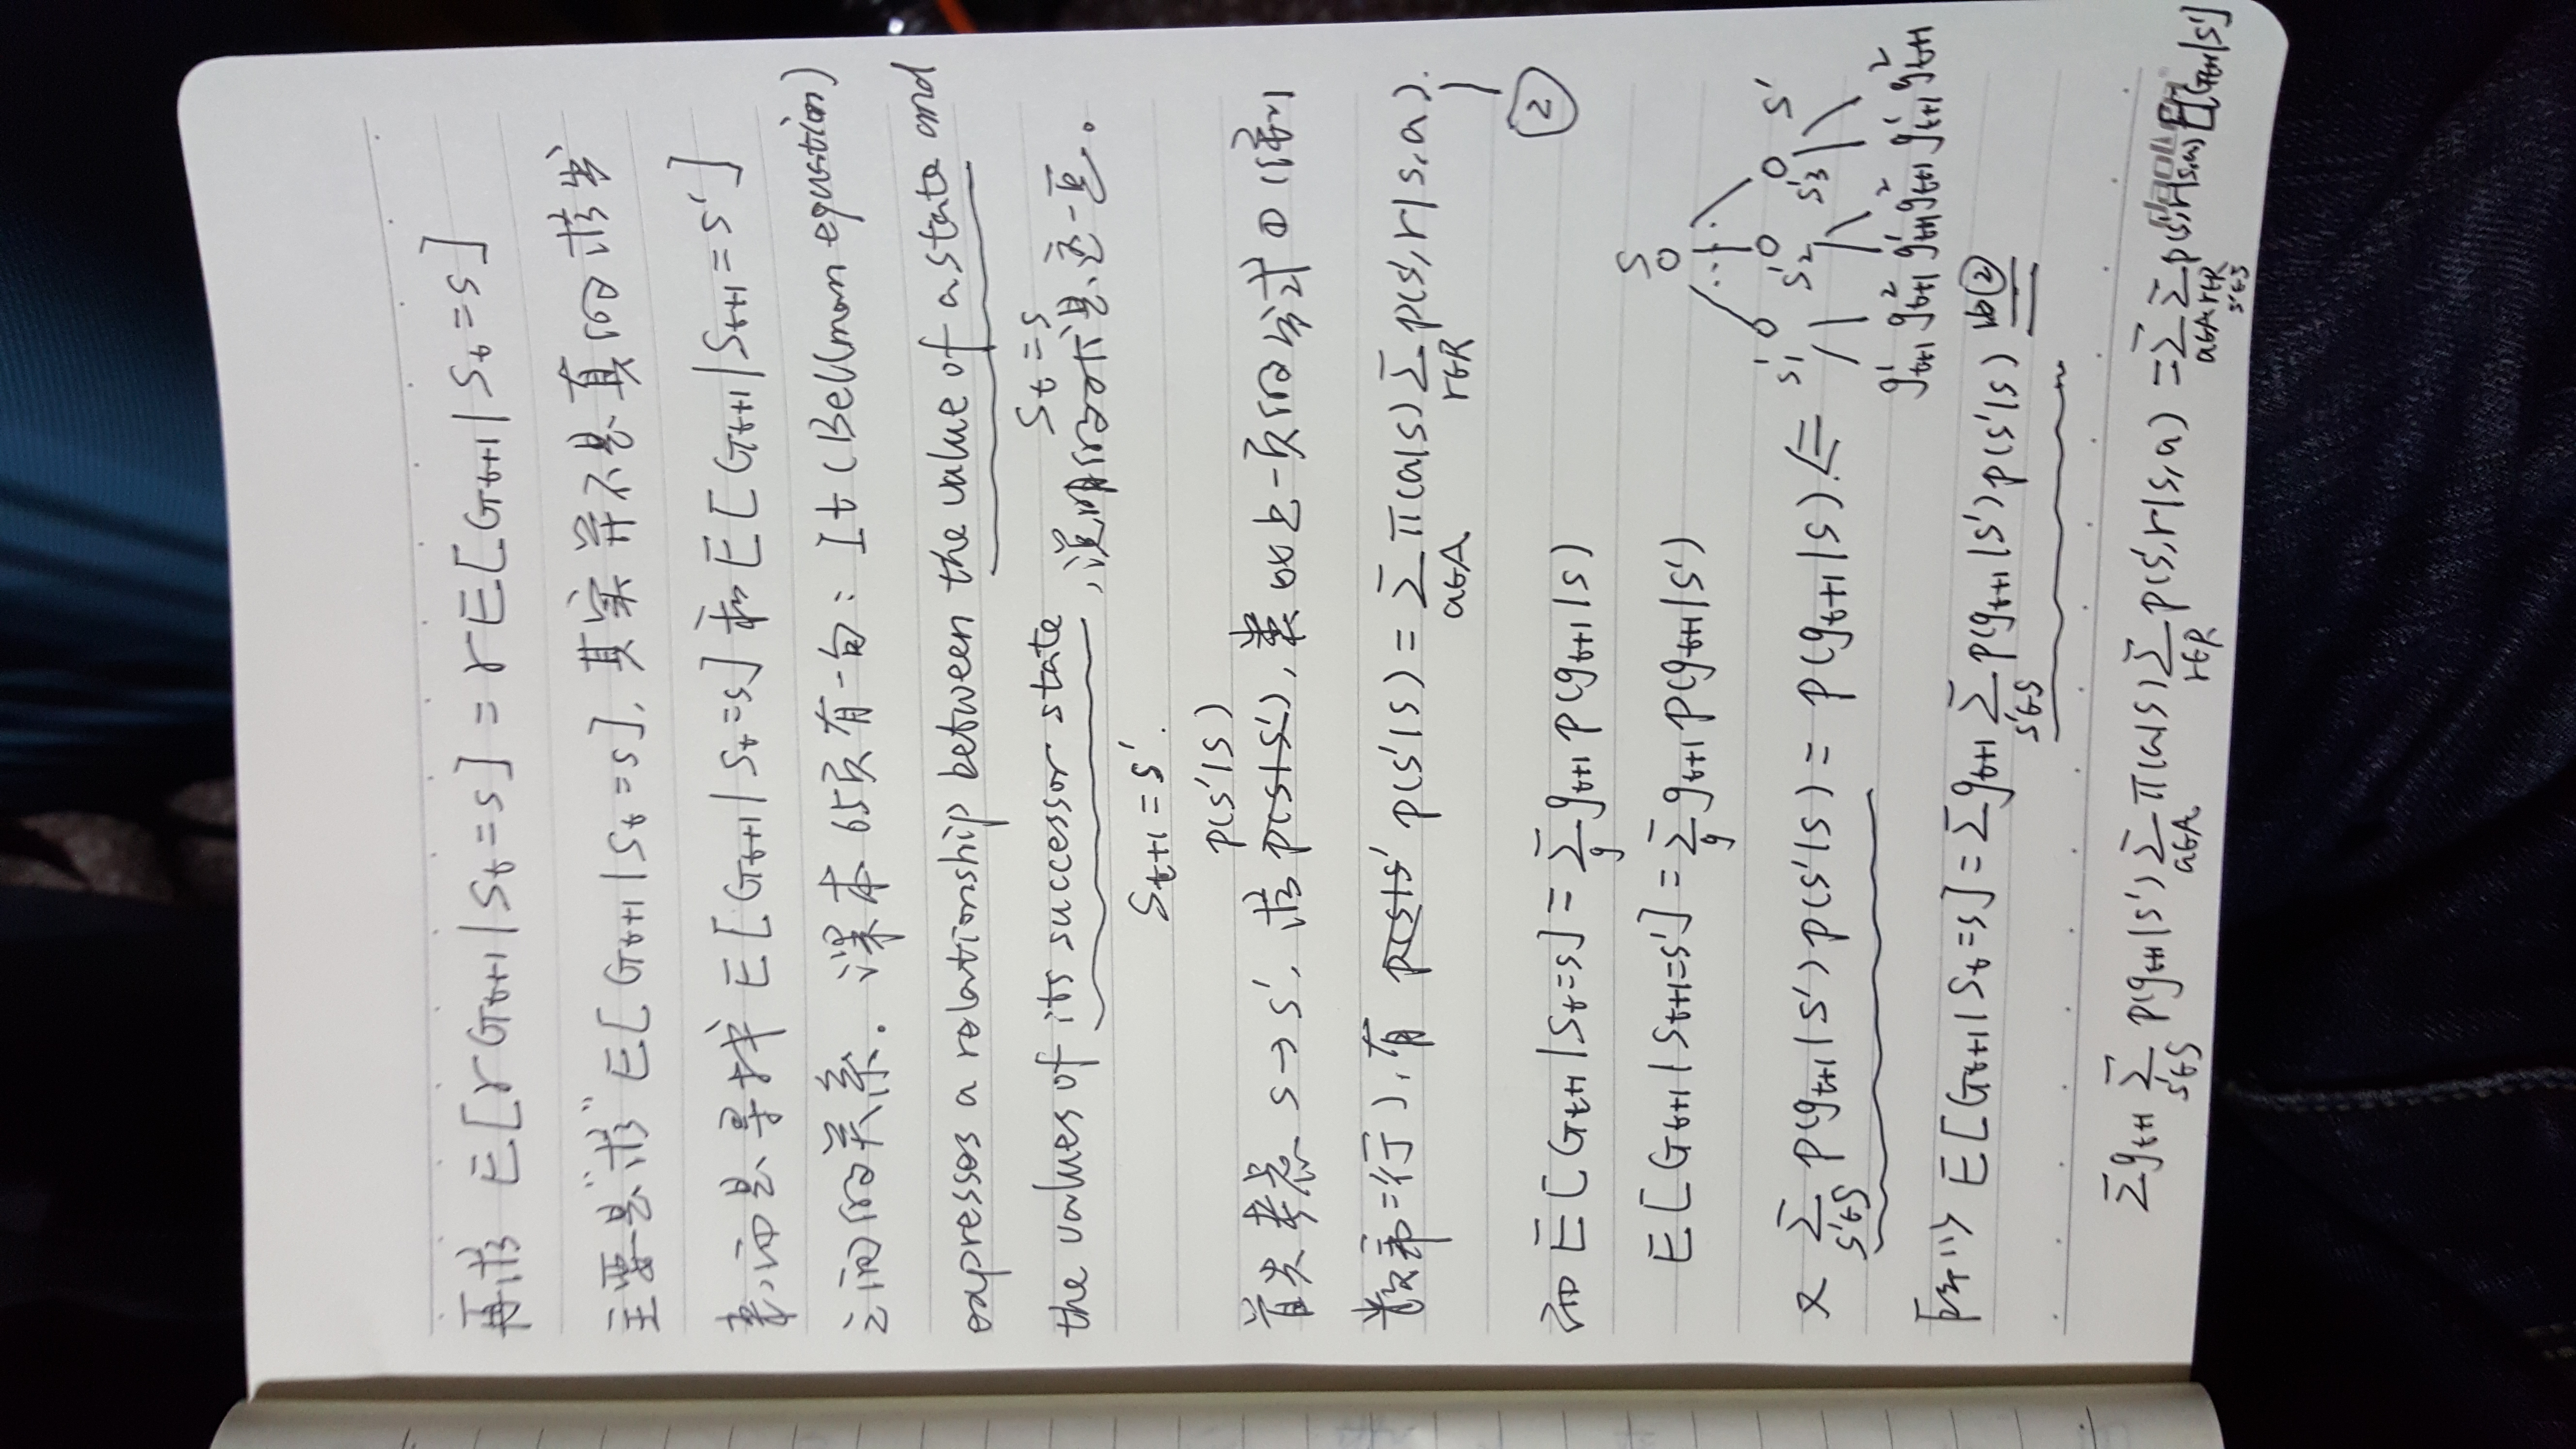 再求 E[γG_{t+1}|S_t=s] = γE[G_{t+1}|S_t=s]
主要是"求" E[G_{t+1}|S_t=s], 其实并不是真的求出
来,而是寻找 E[G_{t+1}|S_t=s] 和 E[G_{t+1}|S_{t+1}=s']
之间的关系. 课本65页有一句: It (Bellman equation)
expresses a relationship between the value of a state and
S_t=s
the values of its successor state, 说明的就是这一点。
S_{t+1}=s'.
p(s'|s)
首先考虑 s→s', 求 p(s|s'), 类似上一页的公式① (倒
数第二行), 有 p(s|s' p(s'|s) = Σ_{a∈A} π(a|s) Σ_{r∈R} p(s',r|s,a).
②
而 E[G_{t+1}|S_t=s] = Σ_g g_{t+1} p(g_{t+1}|s)
E[G_{t+1}|S_{t+1}=s'] = Σ_g g_{t+1} p(g_{t+1}|s')
s
s'_1 s'_2 s'_3 s'
又 Σ_{s'∈S} p(g_{t+1}|s') p(s'|s) = p(g_{t+1}|s). ⇐
g^1_{t+1} g^2_{t+1} g^1_{t+1} g^2_{t+1} g^1_{t+1} g^2_{t+1}
所以 E[G_{t+1}|S_t=s] = Σ g_{t+1} Σ_{s'∈S} p(g_{t+1}|s') p(s'|s) ②
Σ g_{t+1} Σ_{s'∈S} p(g_{t+1}|s') Σ_{a∈A} π(a|s) Σ_{r∈R} p(s',r|s,a) = Σ_{a∈A} Σ_{r∈R s'∈S} p(s',r|s,a) E[G_{t+1}|s']